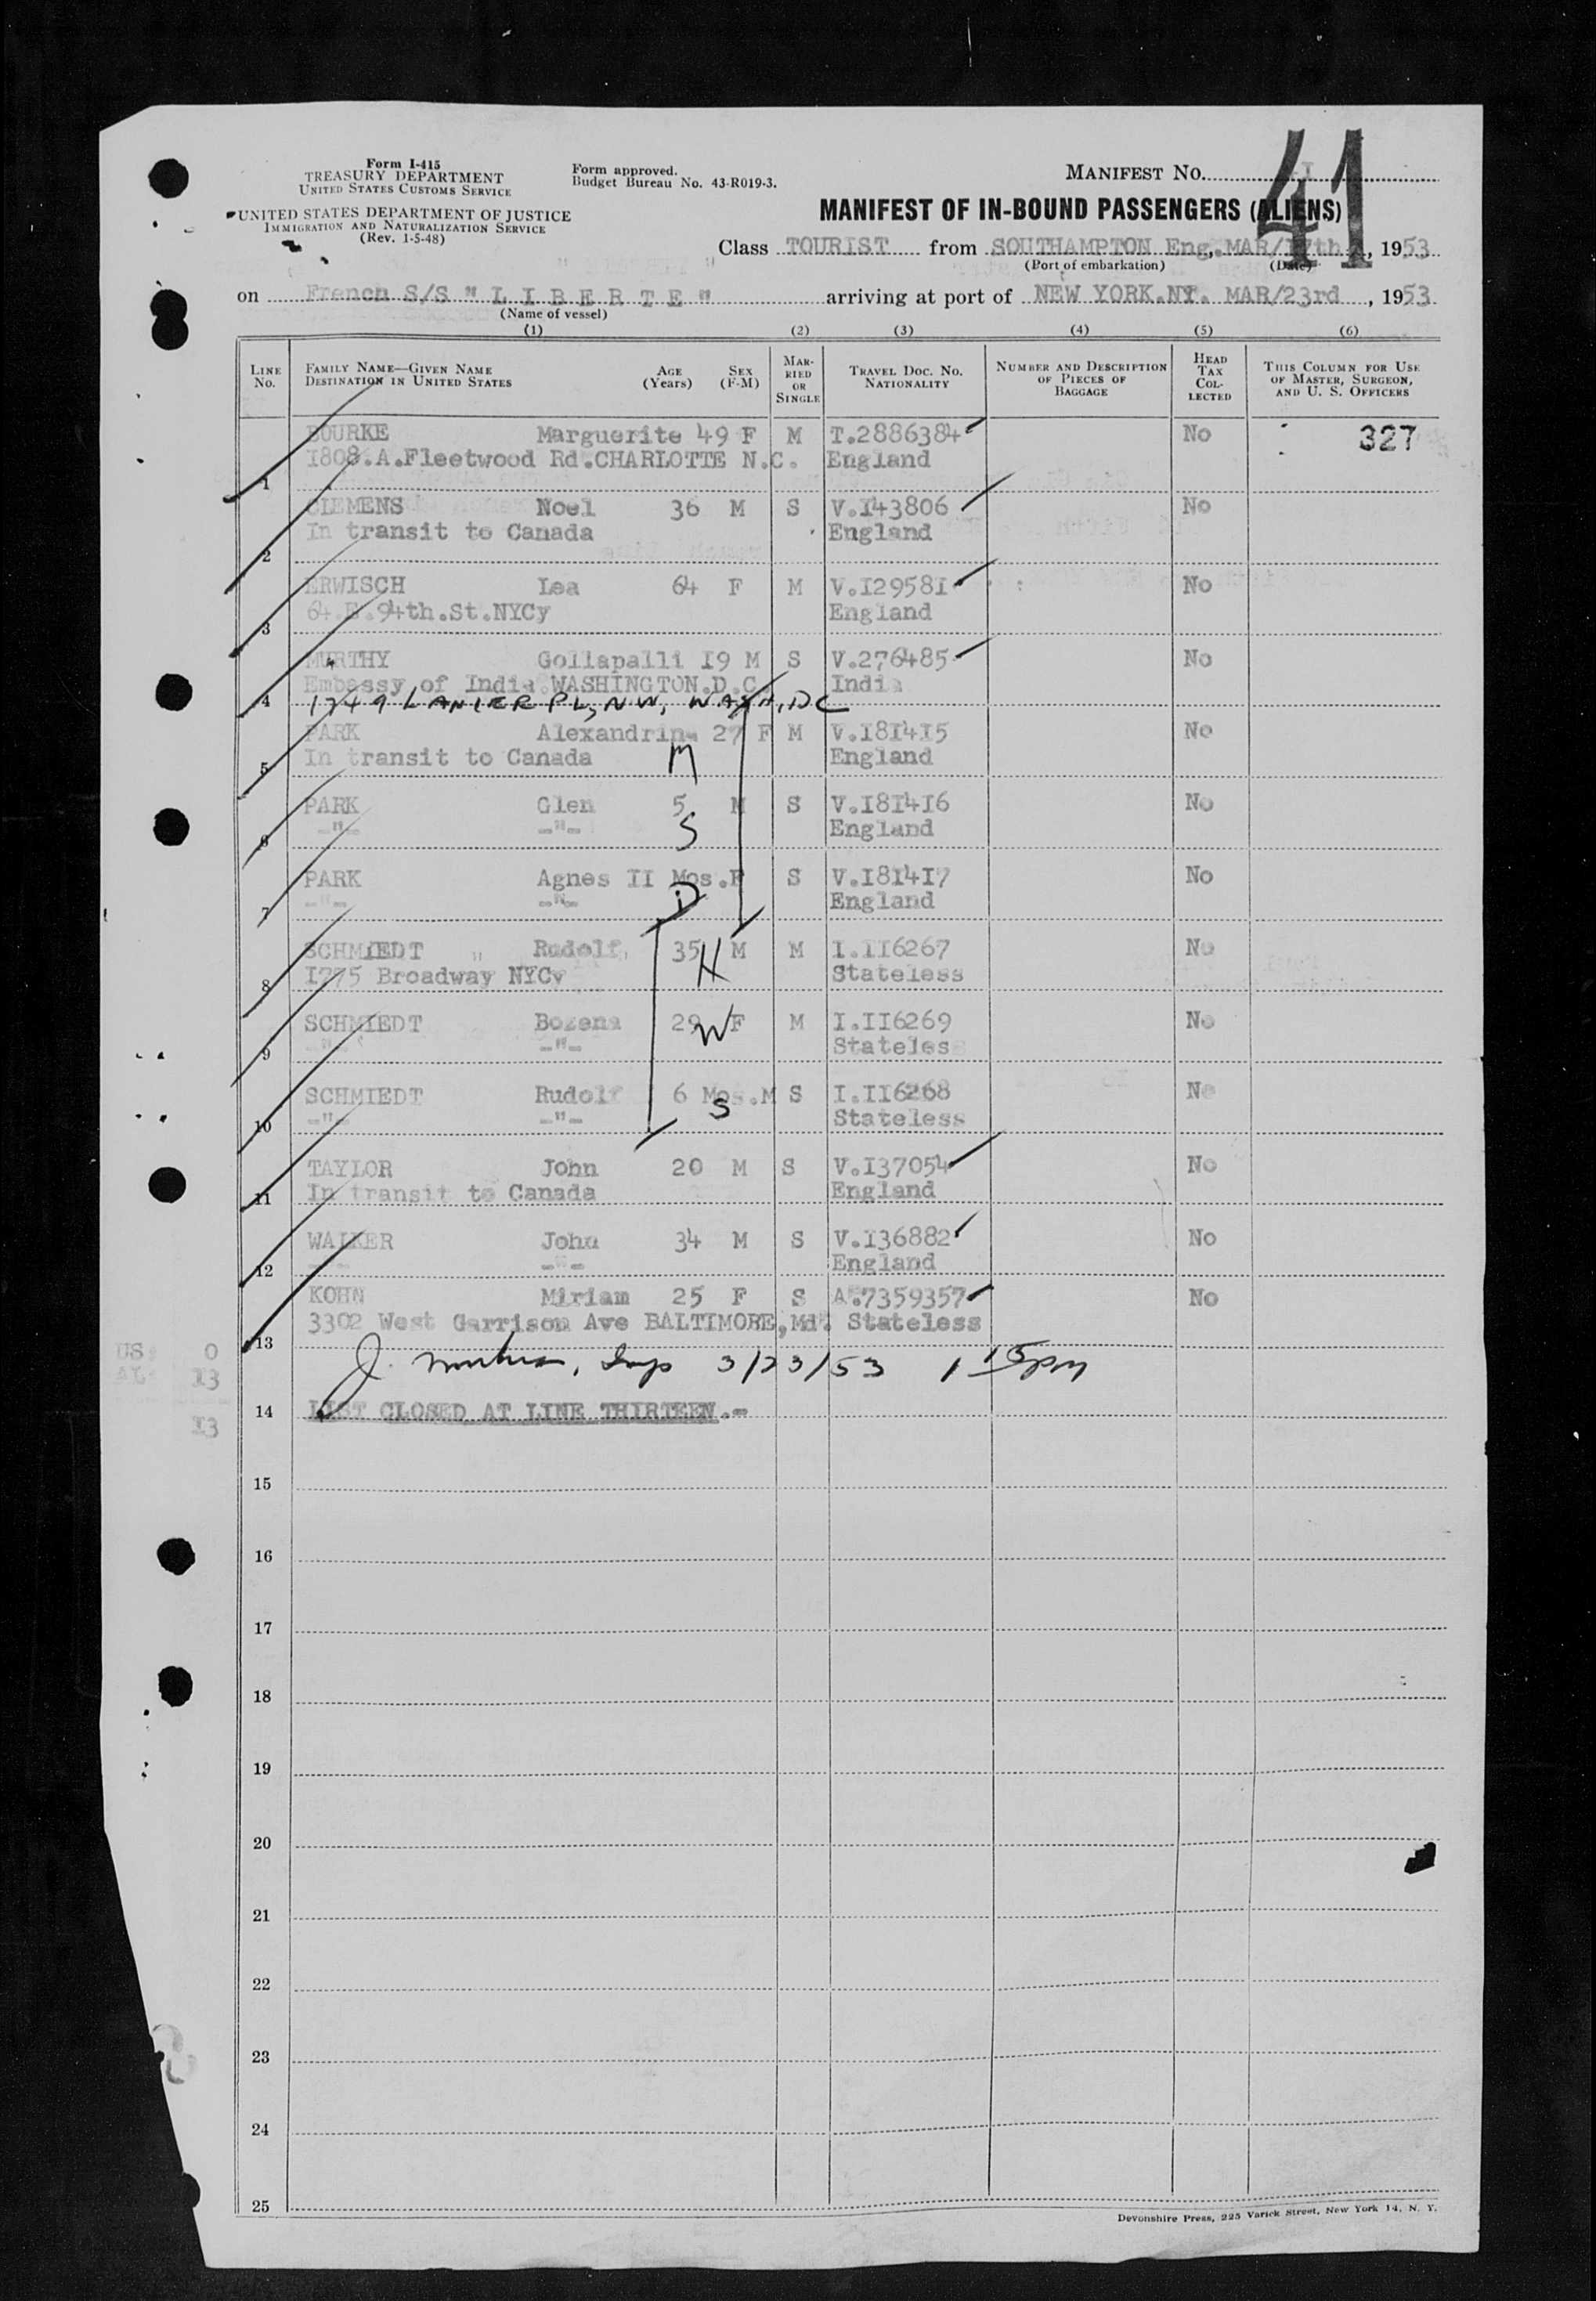 Form I-415
TREASURY DEPARTMENT
UNITED STATES CUSTOMS SERVICE
UNITED STATES DEPARTMENT OF JUSTICE
IMMIGRATION AND NATURALIZATION SERVICE
(Rev. 1-5-48)
Form approved.
Budget Bureau No. 43-R019-3.
MANIFEST NO. I
41
MANIFEST OF IN-BOUND PASSENGERS (ALIENS)
Class TOURIST from SOUTHAMPTON Eng. MAR/17th, 1953
(Port of embarkation) (Date)
on French S/S " L I B E R T E " arriving at port of NEW YORK.NY. MAR/23rd, 1953
(Name of vessel)
(1) (2) (3) (4) (5) (6)
LINE NO. FAMILY NAME—GIVEN NAME DESTINATION IN UNITED STATES AGE (Years) SEX (F-M) MARRIED OR SINGLE TRAVEL DOC. NO. NATIONALITY NUMBER AND DESCRIPTION OF PIECES OF BAGGAGE HEAD TAX COLLECTED THIS COLUMN FOR USE OF MASTER, SURGEON, AND U. S. OFFICERS
BOURKE Marguerite 49 F M T.2886384 No 327
1 I808.A.Fleetwood Rd.CHARLOTTE N.C. England
CLEMENS Noel 36 M S V.I43806 No
2 In transit to Canada England
ERWISCH Lea 64 F M V.I29581 No
3 64.E.94th.St.NYCy England
MURTHY Gollapalli I9 M S V.276485 No
Embassy of India.WASHINGTON.D.C. India
4 1749 LANIER PL, NW, WASH, DC
PARK Alexandrina 27 F M V.I8I4I5 No
5 In transit to Canada M England
PARK Glen 5 M S V.I8I4I6 No
6 -"- -"- S England
PARK Agnes II Mos.F S V.I8I4I7 No
7 -"- -"- D England
SCHMIEDT " Rudolf 35 H M M I.II6267 No
8 I775 Broadway NYCy Stateless
SCHMIEDT Bozena 29 W F M I.II6269 No
9 -"- -"- Stateles
SCHMIEDT Rudolf 6 Mos.M S I.II6268 No
10 -"- -"- S Stateless
TAYLOR John 20 M S V.I37054 No
11 In transit to Canada England
WALKER John 34 M S V.I36882 No
12 -"- -"- England
KOHN Miriam 25 F S A.7359357 No
3302 West Garrison Ave BALTIMORE,Md. Stateless
13
US: 0
AL: I3
I3
J. 3/23/53 1 15 pm
14 LIST CLOSED AT LINE THIRTEEN.-
15
16
17
18
19
20
21
22
23
24
25
Devonshire Press, 225 Varick Street, New York 14, N. Y.